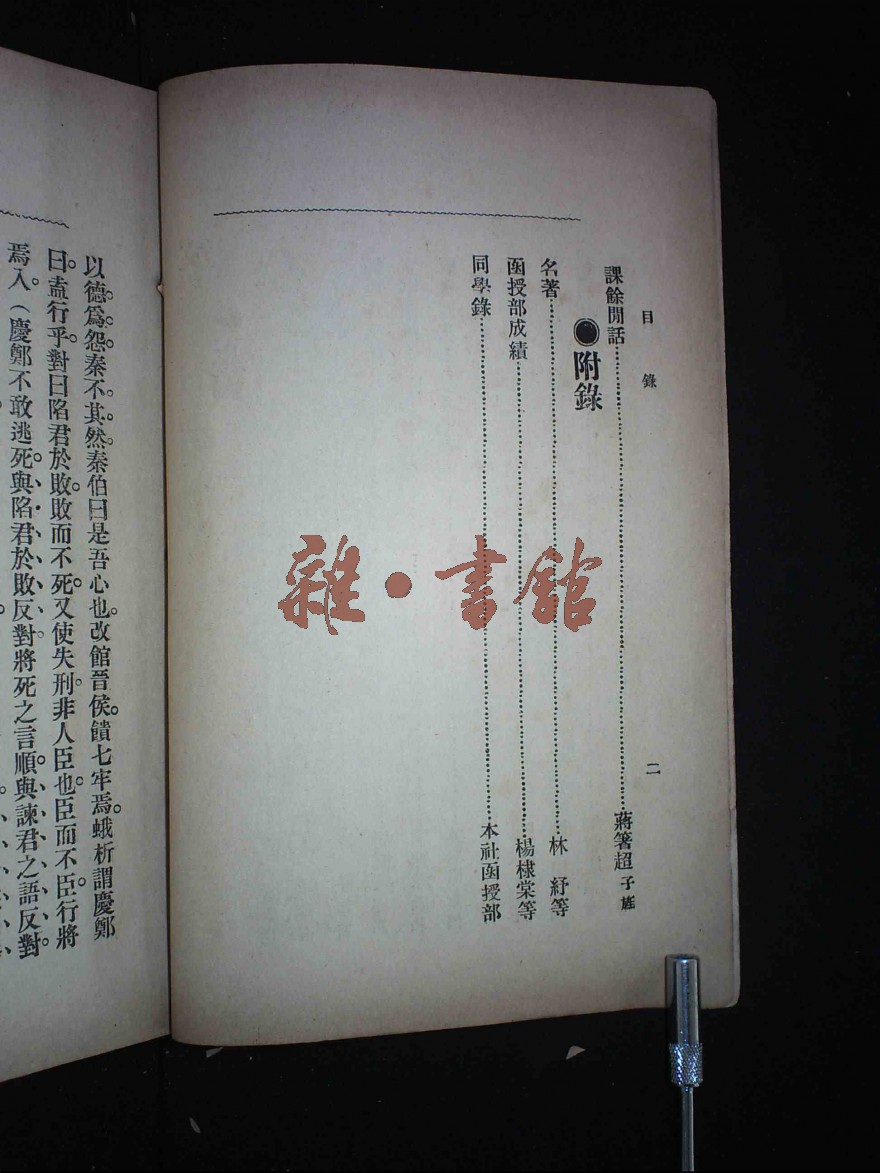 目錄
二
課餘閒話 蔣箸超 子旌
●附錄
名著 林紓等
函授部成績 楊棣棠等
同學錄 本社函授部
以德爲怨秦不其然秦伯曰是吾心也改館晉侯饋七牢焉蛾析謂慶鄭
曰盍行乎對曰陷君於敗敗而不死又使失刑非人臣也臣而不臣行將
焉入（慶鄭不敢逃死與陷君於敗反對將死之言順與諫君之語反對
雜·書館